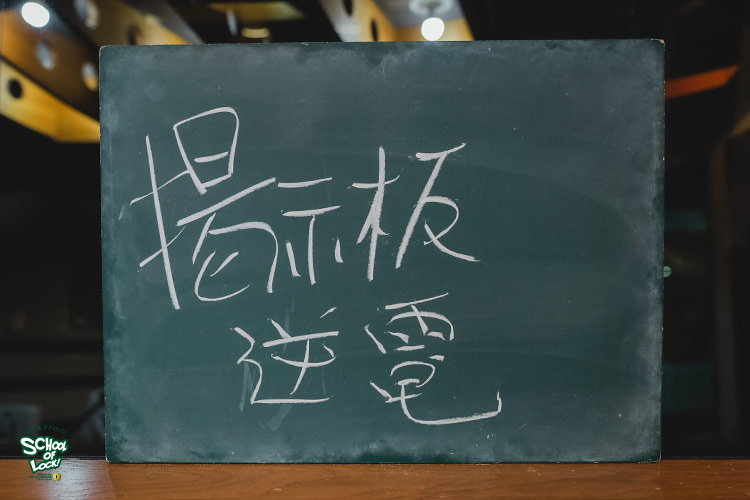 掲示板
逆電
SCHOOL
OF
LOCK!